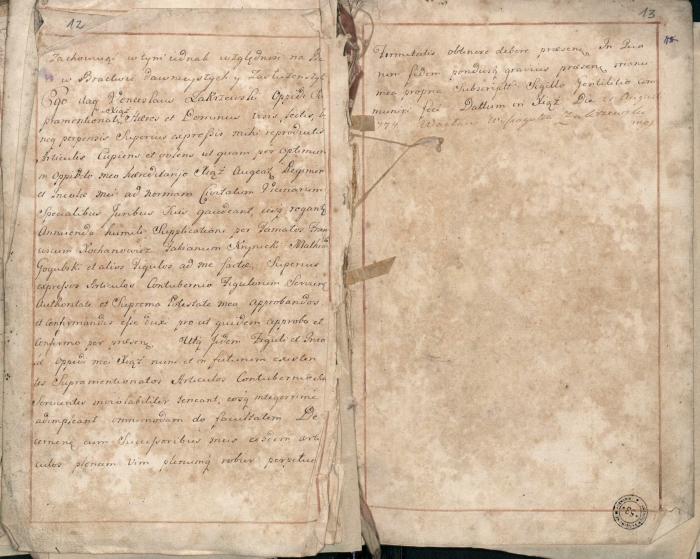 12
Zachowując w tym iednak wzgłędność na
w Bractwie dawnieyszych y Zasłużonszych
Ego itaq Venceslaus Zakrzewski Oppidi
pramentionati Xiąż Hæres et Dominus visis, lectis,
neq perpensis Superius expressis mihi reproductis
Articulis Cupiens et volens ut quam per optimum
in Oppido meo hæreditario Xiąż Augeat Regimen
et Incolæ mei ad normam Civitatum Vicinarum
Specialibus Juribus suis gaudeant, eosq rogantes
Annuendo humili Supplicationi per Famatos Fran
ciscum Kochanowicz Fabianum Knynicki Mathiam
Gogulski et alios Figulos ad me factæ, Superius
expressos Articulos Contubernio Figulorum Servire
Authoritate et Suprema Potestate mea approbandos
et Confirmandos esse duxi prout quidem approbo et
Confirmo per præsens. Utq iidem Figuli et Inco
læ oppidi mei Xiąż nunc et in futurum existen
tes Supramentionatos Articulos Contubernio
Servientes inviolabiliter teneant, eosq integerrime
adimpleant omnimodam do facultatem De
cernens cum Successoribus meis eisdem arti
culos plenam vim plenumq robur perpetuæ
13
firmitatis obtinere debere præsens. In Quo
rum fidem pondusq gravius præsens manu
mea propria Subscripsi Sigillo Gentilitio com
muniri feci Dattum in Xiąż Die August
774. Wacław Zakrzewski